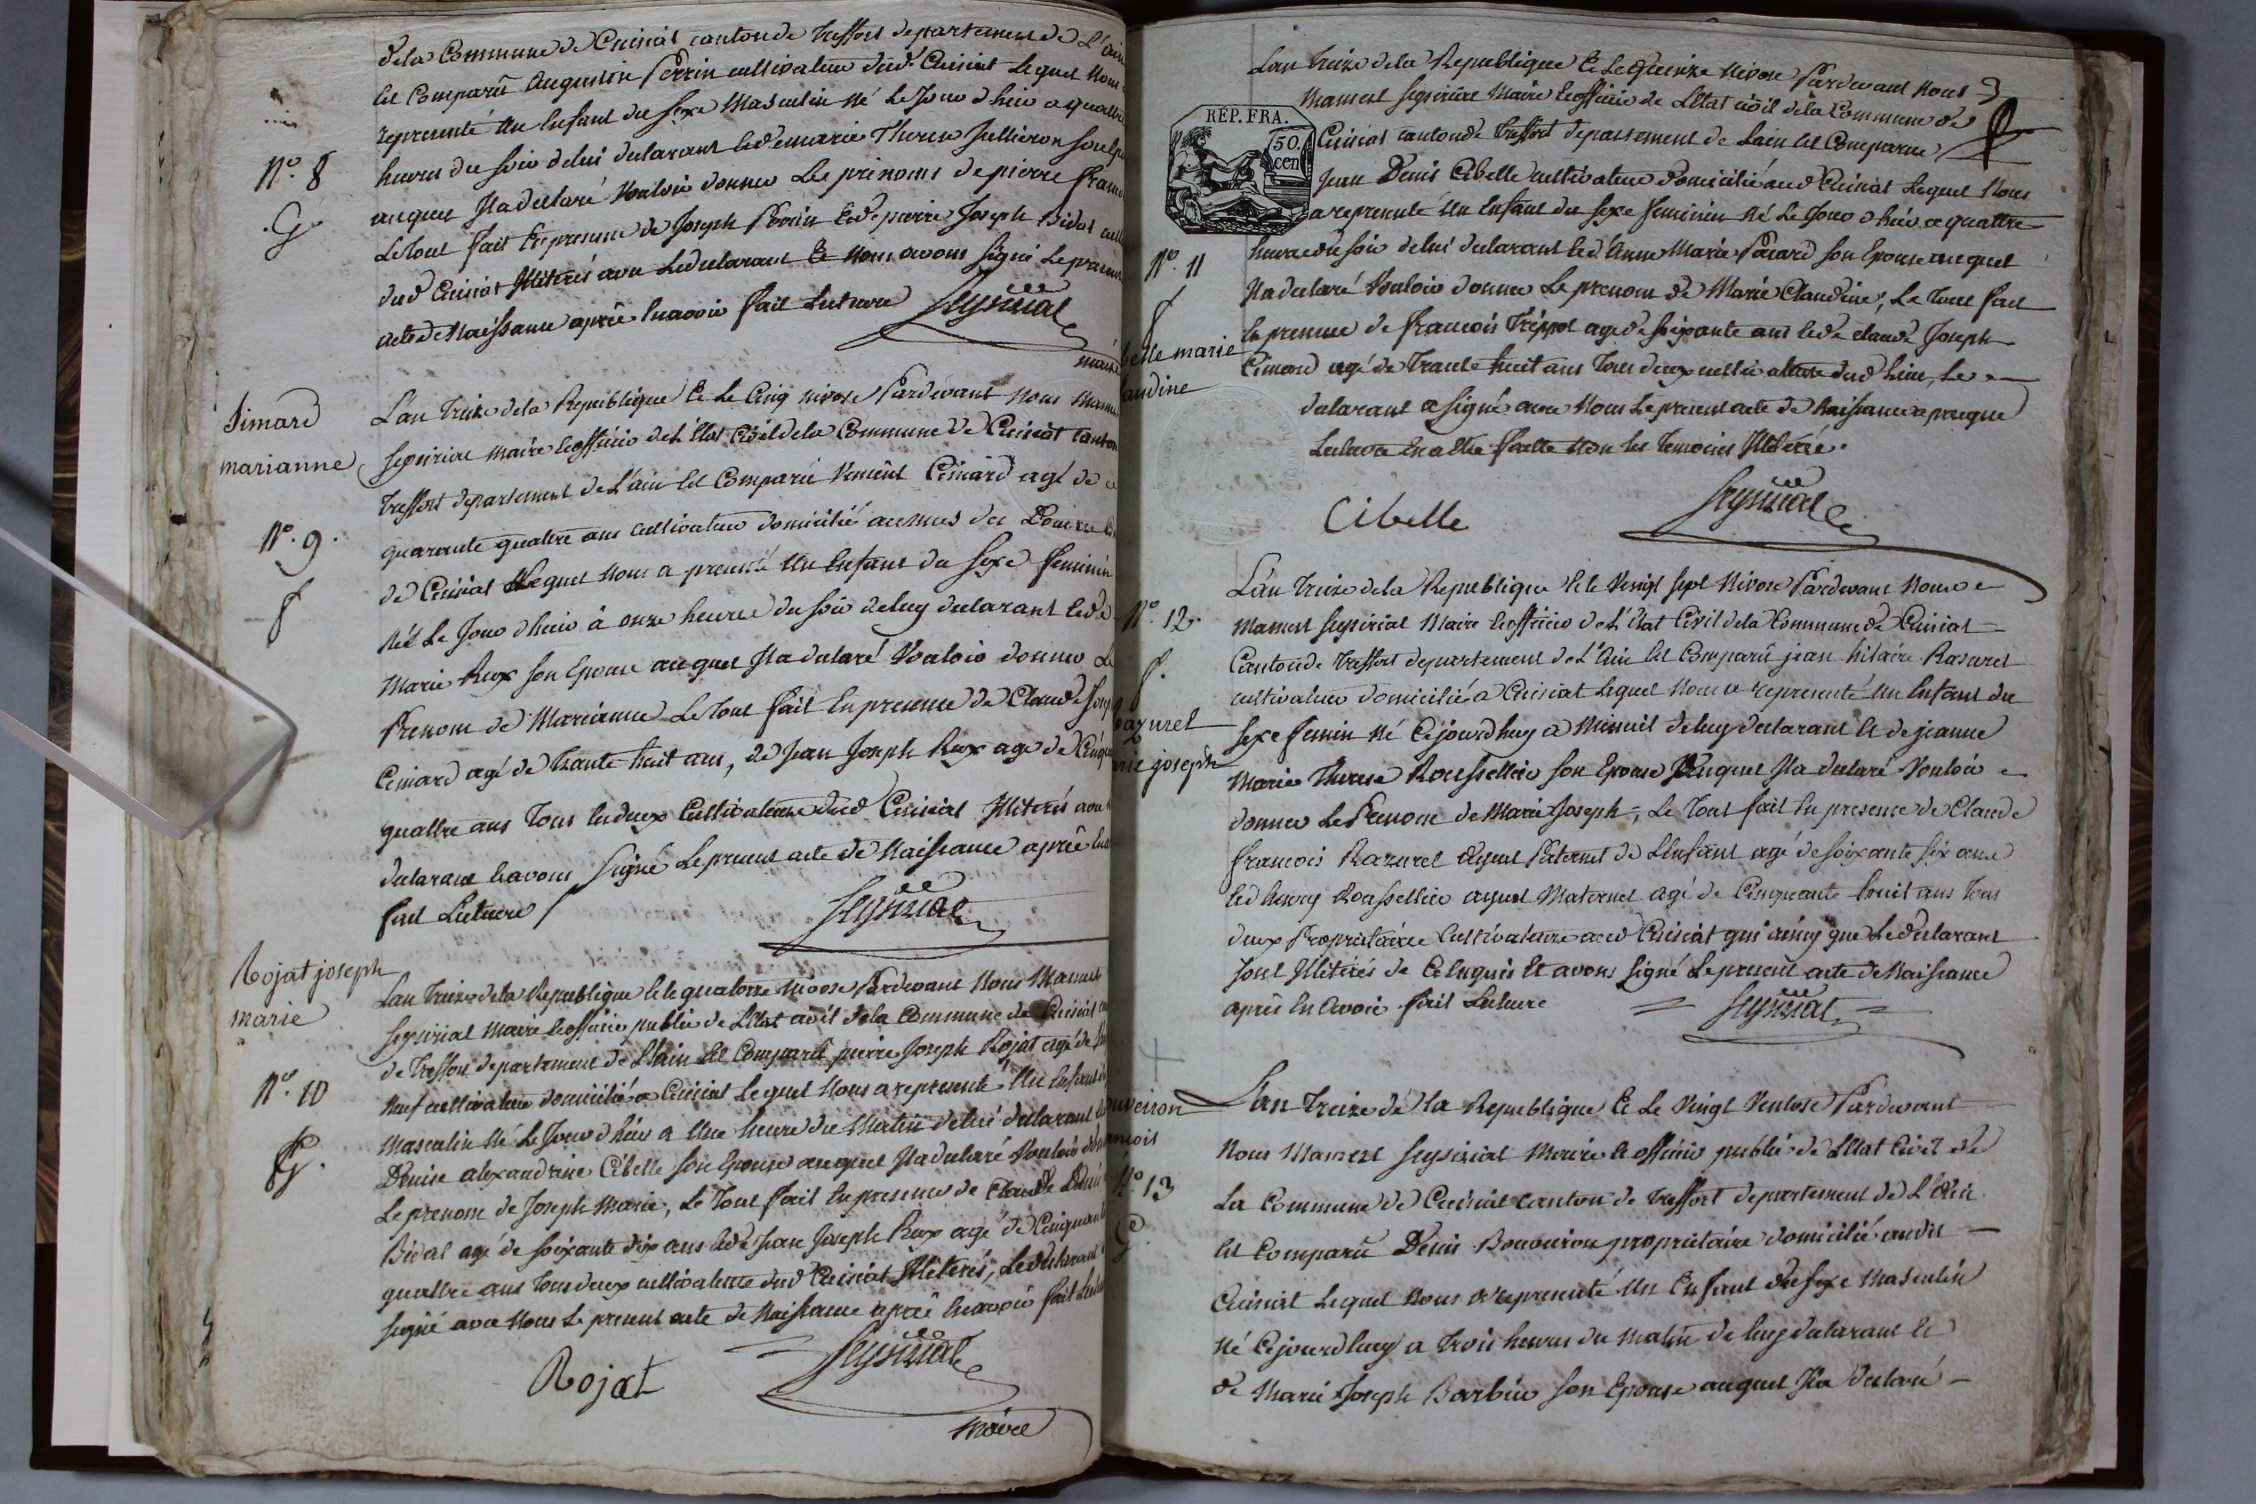 de la Commune de Cuisiat canton de Treffort departement de L'ain
est Comparû Augustin Perrin cultivateur dud. Cuisiat Lequel Nous
representé un Enfant du Sexe Masculin Né Le Jour d hier a quattre
heures du Soir de lui declarant et de marie Therese Jullieron Son
auquel Il a declaré Vouloir donner Les prenoms de pierre
Le Tout fait En presence de Joseph Perrin et de pierre Joseph Bidat
dud Cuisiat Illiterés avec Le declarant Et Nous avons Signé Le present
acte de Naissance après En avoir fait Lecture
maire
N° 8
G.
Simard
marianne
N°. 9.
f
L'an Treize de la Republique Et Le Cinq nivose Pardevant Nous
maire et officier de L'Etat Civil de la Commune de Cuisiat canton
Treffort departement de L'ain Est Comparu Vincent Cimard agé de
quarante quattre ans cultivateur domicilié
de Cuisiat Lequel Nous a presenté Un Enfant du Sexe feminin
Née Le Jour d hier à onze heures du Soir de luy declarant et de
Marie Rux Son Epouse auquel Il a declaré Vouloir donner Le
Prenom de Marianne Le Tout fait En presence de Claude
Cimard agé de Trante huit ans, de Jean Joseph Rux agé de
quattre ans Tous Les deux Cultivateurs dud Cuisiat Illiterés avec
declarant et avons Signé Le present acte de Naissance après
fait Lecture
Rojat joseph
marie
N°. 10
G.
L'an Treize de la Republique et le quatorze nivose Pardevant Nous Mamert
maire et officier public de L'Etat civil de la Commune de Cuisiat
de Treffort departement de L'ain Est Comparû pierre Joseph Rojat agé de
Neuf cultivateur domicilié a Cuisiat Lequel Nous a representé Un Enfant
Masculin Né Le Jour d hier a Une heure du Matin de lui declarant
Denise alexandrine Cibelle Son Epouse auquel Il a declaré Vouloir
Le prenom de Joseph Marie, Le Tout fait En presence de Claude
Bidat agé de Soixante dix ans et de Jean Joseph Rux agé de
quattre ans Tous deux cultivateurs dud Cuisiat Illiterés, Le declarant
Signé avec Nous Le present acte de Naissance après En avoir fait
Rojat
maire
RÉP. FRA.
50.
cen
L'an Treize de la Republique Et Le Quinze Nivose Pardevant Nous
Mamert Maire et officier de L'Etat civil de la Commune de
Cuisiat canton de Treffort departement de L'ain Est Comparu
Jean Denis Cibelle cultivateur domicilié aud Cuisiat Lequel Nous
a representé Un Enfant du Sexe feminin Né Le Jour d hier a quattre
heures du Soir de lui declarant et d'Anne Marie Son Epouse auquel
Il a declaré Vouloir donner Le prenom de Marie Claudine, Le Tout fait
En presence de francois agé de Soixante ans et de claude Joseph
Cimard agé de Trante huit ans Tous deux cultivateurs dud Lieu, Le
declarant a Signé avec Nous Le present acte de Naissance après que
Lecture En a Eté faitte Non les Temoins Illiterés.
N°. 11
f
belle marie
audine
Cibelle
N°. 12.
f.
azurel
rie joseph
L'an Treize de la Republique et le Vingt Sept Nivose Pardevant Nous
Mamert Maire et officier de L'Etat Civil de la Commune de Cuisiat
Canton de Treffort departement de L'Ain Est Comparû jean hilaire Razurel
cultivateur domicilié a Cuisiat Lequel Nous a representé Un Enfant du
Sexe femin Né Cejourdhuy a Minuit de luy declarant Et de jeanne
Marie Therese Rousselliee Son Epouse auquel Il a declaré Vouloir
donner Le Prenom de Marie Joseph, Le Tout fait En presence de Claude
francois Razurel ayeul Paternel de L'Enfant agé de Soixante Six ans
ayeul Maternel agé de Cinquante huit ans Tous
deux Propriétaires Cultivateurs aud Cuisiat qui ainsy que Le declarant
Sont Illiterés de Ce Enquis Et avons Signé Le present acte de Naissance
après En Avoir fait Lecture
uveiron
ancois
N° 13
G.
L'an Treize de la Republique Et Le Vingt Ventose Pardevant
Nous Mamert Maire et officier public de L'Etat Civil de
La Commune de Cuisiat canton de Treffort departement de L'Ain
Est Comparû Denis Bouveiron propriétaire domicilié audit
Cuisiat Lequel Nous a representé Un Enfant du Sexe Masculin
Né Cejourdhuy a Trois heures du Matin de luy declarant Et
de Marie Joseph Barbier Son Epouse auquel Il a declaré